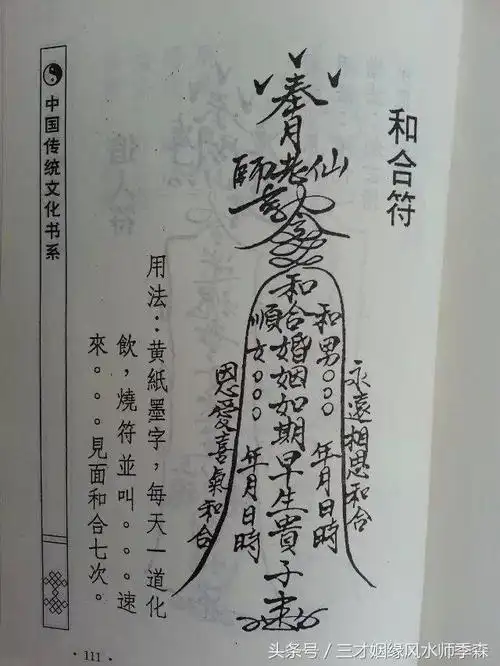 和合符
奉
月
師老仙
令
永遠相思和合
和男○○○ 年月日時
和合婚姻如期早生貴子
順女○○○ 年月日時
恩愛喜氣和合
用法：黄紙墨字，每天一道化
飲，燒符並叫。。。速
來。。。見面和合七次。
中国传统文化书系
·111·
头条号／三才姻缘风水师季森